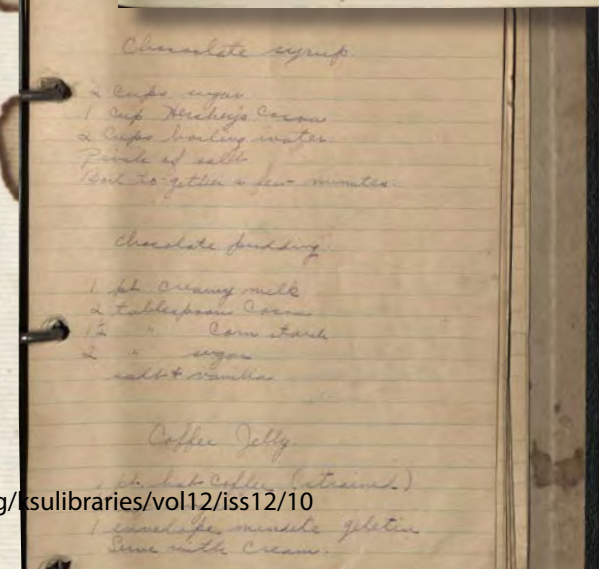 Chocolate syrup
2 cups sugar
1 cup Hershey's Cocoa
2 Cups boiling water
Pinch of salt
Boil to-gether a few minutes.
Chocolate pudding
1 pt. Creamy milk
2 tablespoons Cocoa
1½ " Corn starch
2 " sugar
salt & vanilla
Coffee Jelly
pt. hot Coffee (strained)
g/ksulibraries/vol12/iss12/10
1 envelope minute geletin
Serve with Cream.